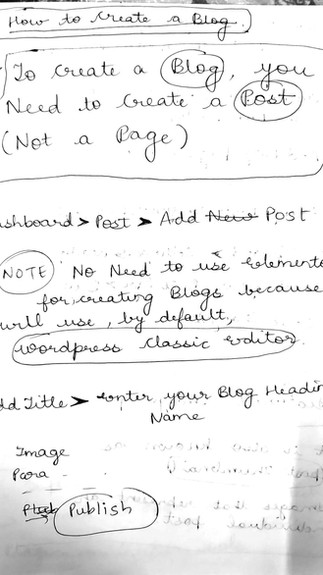 How to Create a Blog
To create a Blog, you
Need to create a Post
(Not a Page)
shboard > Post > Add New Post
NOTE No Need to use Elemento
for creating Blogs because
will use, by default,
wordpress classic Editor
dd Title > Enter your Blog Headin
Name
Image
Para
Publish